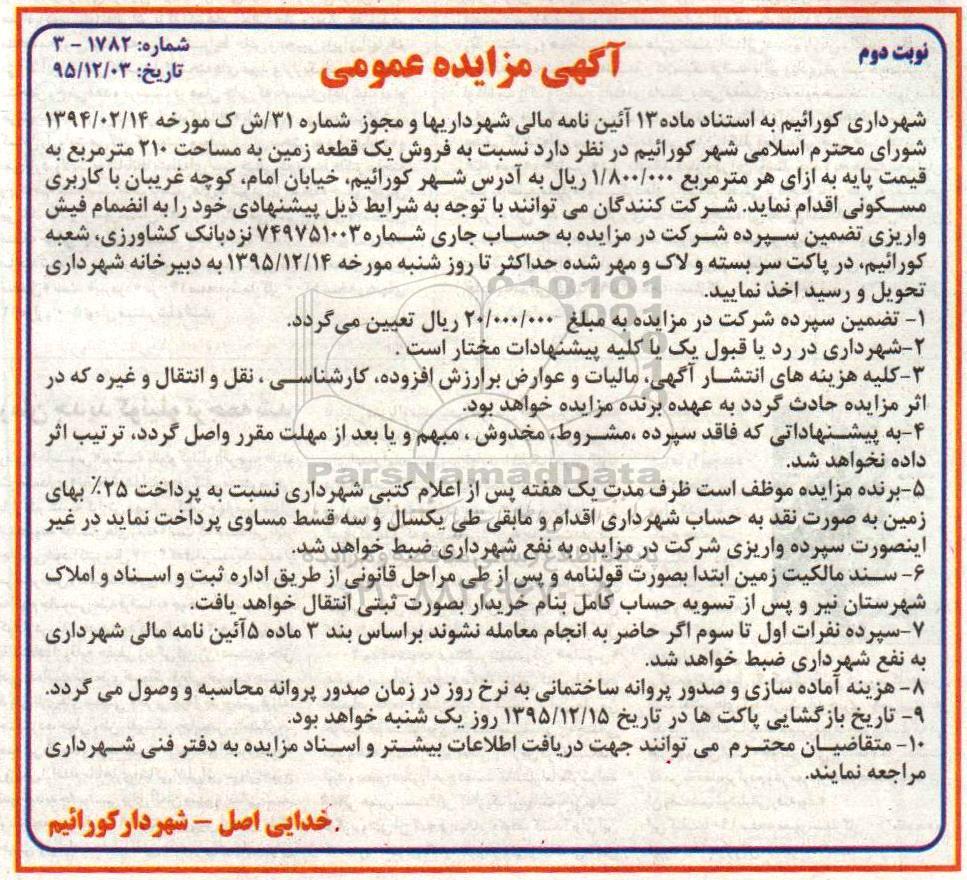 نوبت دوم
آگهی مزایده عمومی
شماره: ۱۷۸۲ - ۳
تاریخ: ۹۵/۱۲/۰۳
شهرداری کورائیم به استناد ماده۱۳ آئین نامه مالی شهرداریها و مجوز شماره ۳۱/ش ک مورخه ۱۳۹۴/۰۲/۱۴
شورای محترم اسلامی شهر کورائیم در نظر دارد نسبت به فروش یک قطعه زمین به مساحت ۲۱۰ مترمربع به
قیمت پایه به ازای هر مترمربع ۱/۸۰۰/۰۰۰ ریال به آدرس شهر کورائیم، خیابان امام، کوچه غریبان با کاربری
مسکونی اقدام نماید. شرکت کنندگان می توانند با توجه به شرایط ذیل پیشنهادی خود را به انضمام فیش
واریزی تضمین سپرده شرکت در مزایده به حساب جاری شماره۷۴۹۷۵۱۰۰۳ نزدبانک کشاورزی، شعبه
کورائیم، در پاکت سر بسته و لاک و مهر شده حداکثر تا روز شنبه مورخه ۱۳۹۵/۱۲/۱۴ به دبیرخانه شهرداری
تحویل و رسید اخذ نمایید.
۱- تضمین سپرده شرکت در مزایده به مبلغ ۲۰/۰۰۰/۰۰۰ ریال تعیین می‌گردد.
۲-شهرداری در رد یا قبول یک یا کلیه پیشنهادات مختار است .
۳-کلیه هزینه های انتشار آگهی، مالیات و عوارض برارزش افزوده، کارشناسی ، نقل و انتقال و غیره که در
اثر مزایده حادث گردد به عهده برنده مزایده خواهد بود.
۴-به پیشنهاداتی که فاقد سپرده ،مشروط، مخدوش ، مبهم و یا بعد از مهلت مقرر واصل گردد، ترتیب اثر
داده نخواهد شد.
۵-برنده مزایده موظف است ظرف مدت یک هفته پس از اعلام کتبی شهرداری نسبت به پرداخت ۲۵٪ بهای
زمین به صورت نقد به حساب شهرداری اقدام و مابقی طی یکسال و سه قسط مساوی پرداخت نماید در غیر
اینصورت سپرده واریزی شرکت در مزایده به نفع شهرداری ضبط خواهد شد.
۶- سند مالکیت زمین ابتدا بصورت قولنامه و پس از طی مراحل قانونی از طریق اداره ثبت و اسناد و املاک
شهرستان نیر و پس از تسویه حساب کامل بنام خریدار بصورت ثبتی انتقال خواهد یافت.
۷-سپرده نفرات اول تا سوم اگر حاضر به انجام معامله نشوند براساس بند ۳ ماده ۵آئین نامه مالی شهرداری
به نفع شهرداری ضبط خواهد شد.
۸- هزینه آماده سازی و صدور پروانه ساختمانی به نرخ روز در زمان صدور پروانه محاسبه و وصول می گردد.
۹- تاریخ بازگشایی پاکت ها در تاریخ ۱۳۹۵/۱۲/۱۵ روز یک شنبه خواهد بود.
۱۰- متقاضیان محترم می توانند جهت دریافت اطلاعات بیشتر و اسناد مزایده به دفتر فنی شهرداری
مراجعه نمایند.
خدایی اصل - شهردار کورائیم.
ParsNamadData